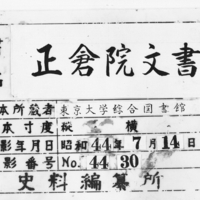 正倉院文書
本所蔵者 東京大學綜合図書館
本寸度 縦 横
影年月日 昭和44年7月14日
影番号 No. 44 30
史料編纂所